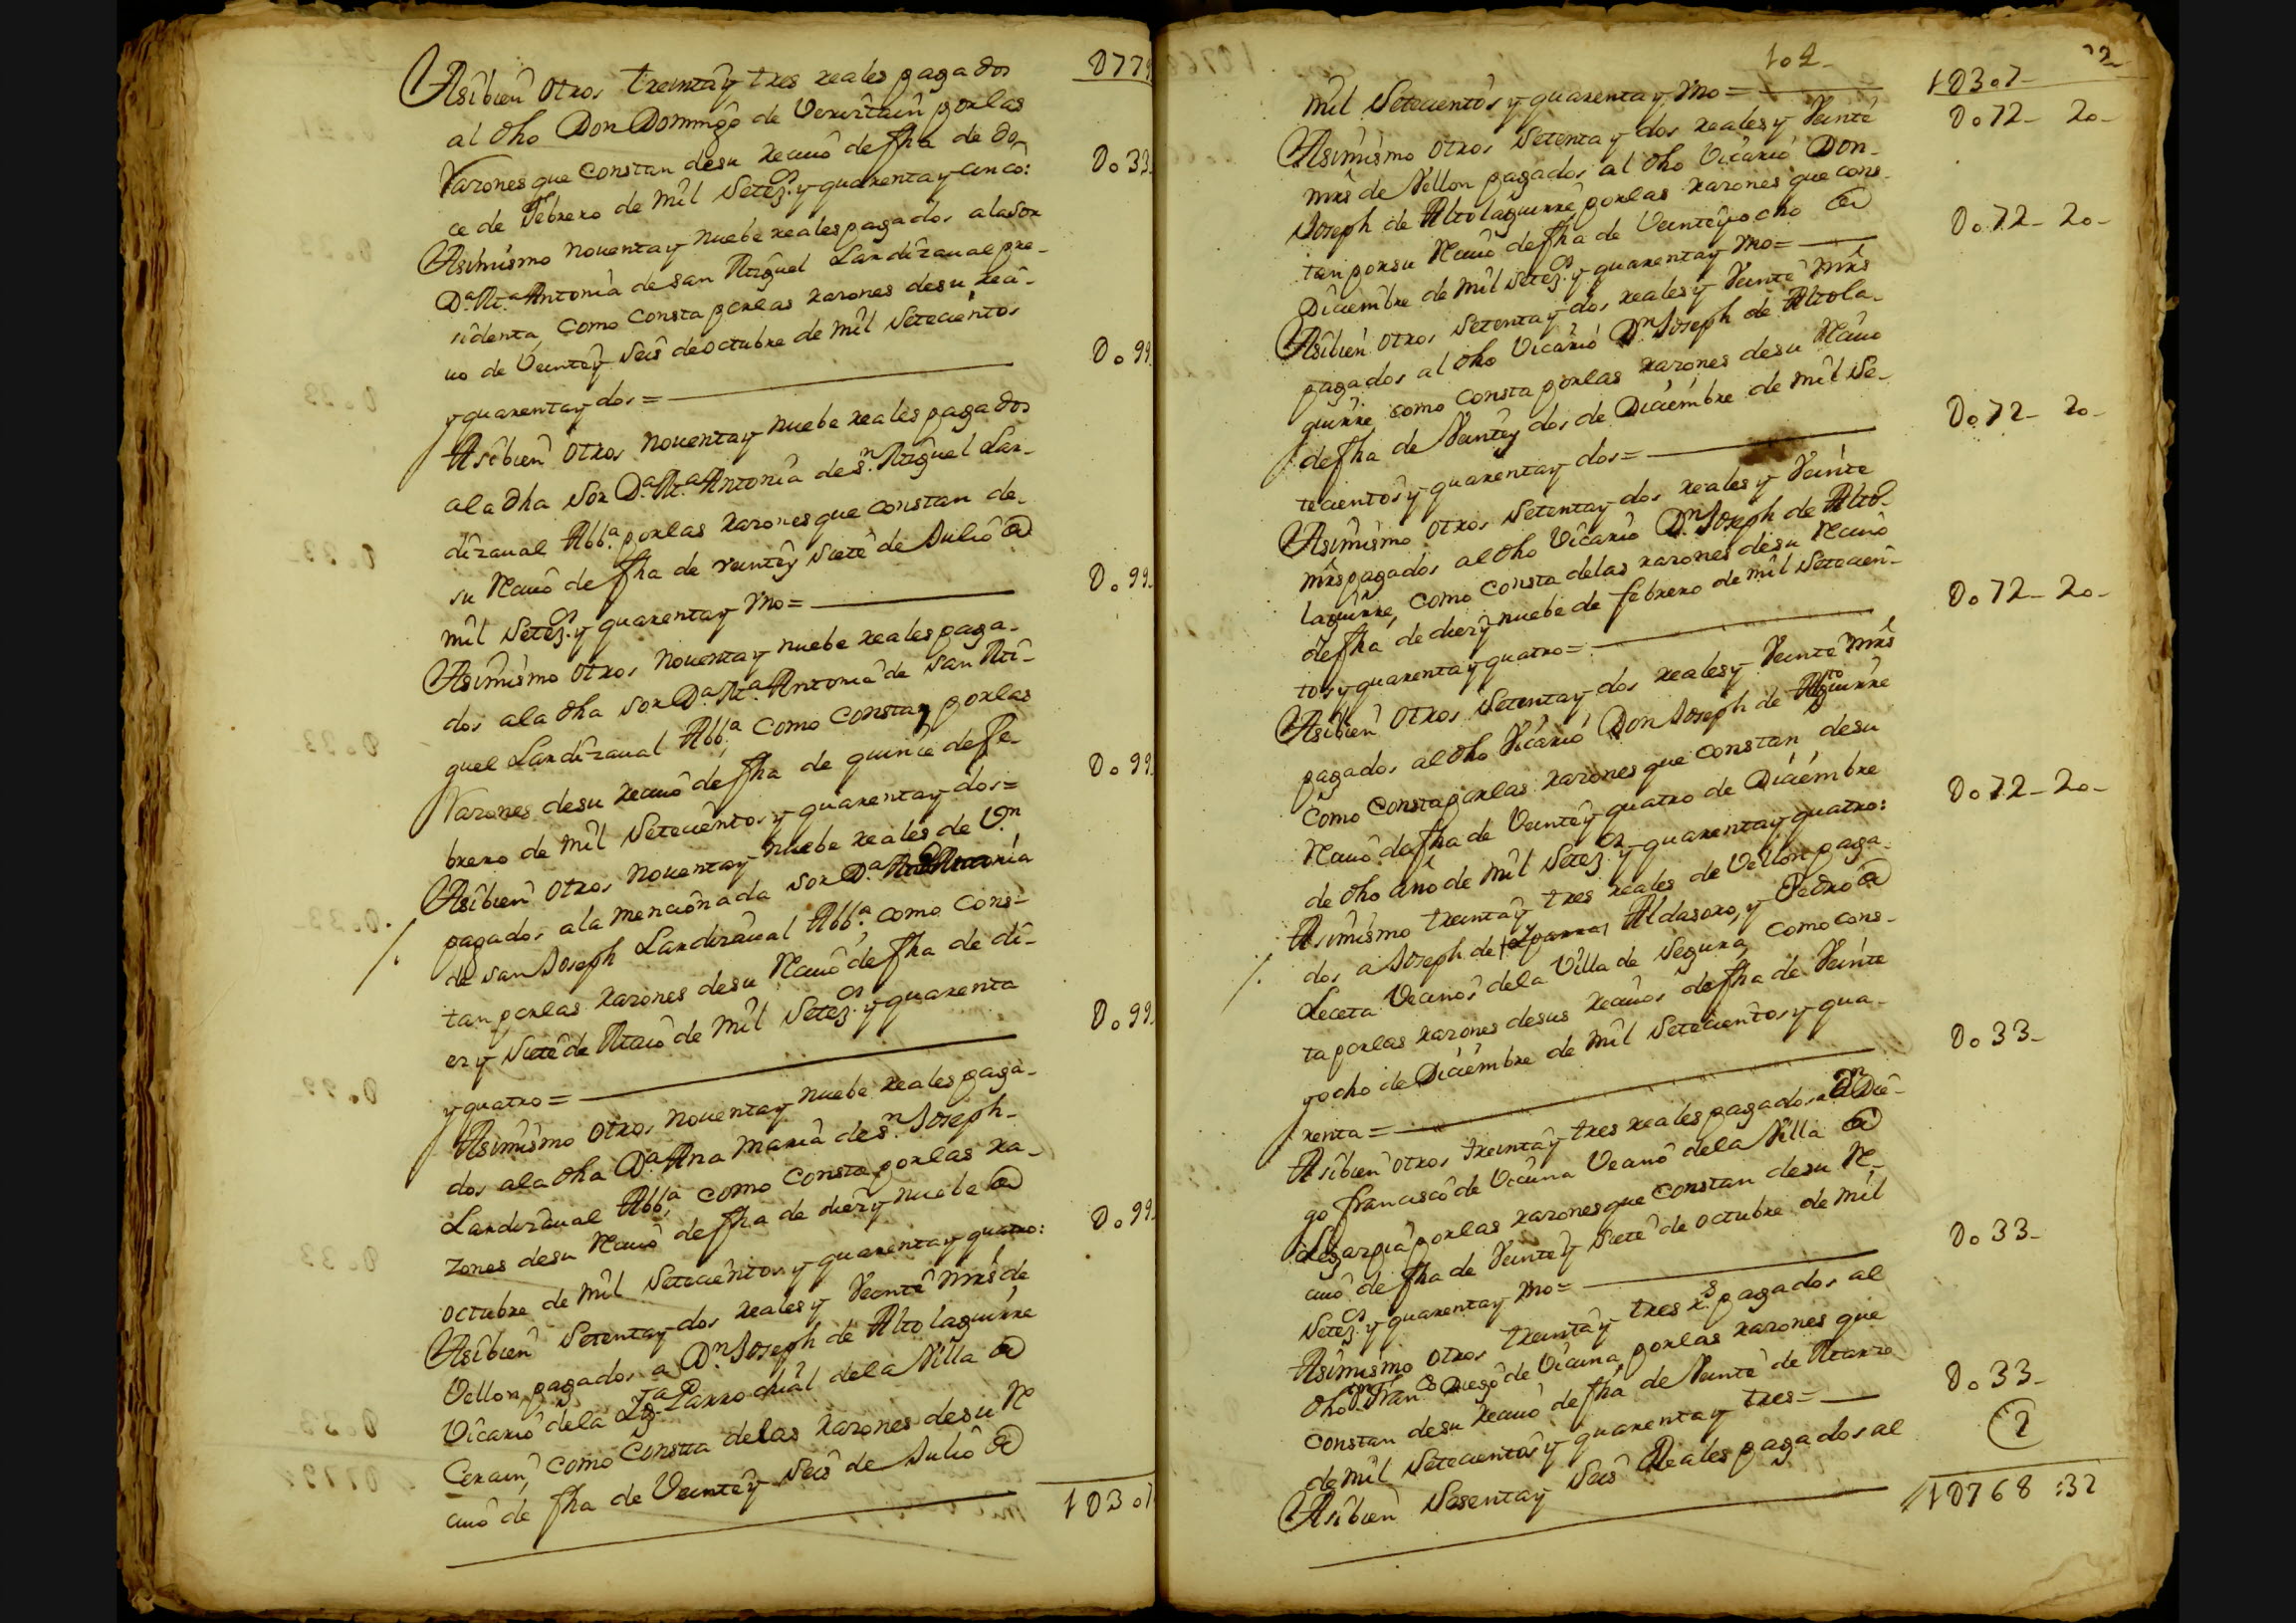 D779
Asibien otros treinta y tres reales pagados
al dho Don Domingo de Veristain por las
Razones que constan de su reciuo de fha de do-
ce de Febrero de mil Setez.os y quarenta y cinco: D o 33
Asimismo nouenta y nuebe reales pagados a la sor
D.a M.a Antonia de san Miguel Lardizaual pre-
sidenta, como consta por las razones de su reci-
uo de Veinte y Seis de octubre de mil Setecientos
y quarenta y dos = D o 99
Asibien otros nouenta y nuebe reales pagados
a la dha sor D.a M.a Antonia de S.n Miguel Lar-
dizaual Abb.a por las razones que constan de
su Reciuo de fha de veinte y siete de Julio @
mil Setez.os y quarenta y vno = D o 99
Asimismo otros nouenta y nuebe reales paga-
dos a la dha sor D.a M.a Antonia de san Mi-
guel Lardizaual Abb.a como consta por las
Razones de su reciuo de fha de quince de fe-
brero de mil Setecientos y quarenta y dos = D o 99
Asibien otros nouenta y nuebe reales de V.n
pagados a la mencionada sor D.a Antonia
de san Joseph Lardizaual Abb.a como cons-
tan por las razones de su Reciuo de fha de di-
ez y siete de Maio de mil Setez.os y quarenta
y quatro = D o 99
Asimismo otros nouenta y nuebe reales paga-
dos a la dha D.a Ana Maria de S.n Joseph
Lardizaual Abb.a como consta por las ra-
zones de su Reciuo de fha de diez y nuebe @
octubre de mil Setecientos y quarenta y quatro: D o 99
Asibien Setenta y dos reales y Veinte mrs de
Vellon pagados a D.n Joseph de Altolaguirre
Vicario de la Yg.a Parrochial de la Villa @
Cerain, como consta de las razones de su Re
ciuo de fha de Veinte y Seis de Julio @
1 D 3 o 7
102
1 D 3 o 7
mil Setecientos y quarenta y vno = D o 72 - 20
Asimismo otros Setenta y dos reales y Veinte
mrs de Vellon pagados al dho Vicario Don
Joseph de Altolaguirre por las razones que cons-
tan por su Reciuo de fha de Veinte y ocho @
Diciembre de mil Setez.os y quarenta y vno = D o 72 - 20
Asibien otros Setenta y dos reales y Veinte mrs
pagados al dho Vicario D.n Joseph de Altola-
guirre como consta por las razones de su Reciuo
de fha de Veinte y dos de Diciembre de mil Se-
tecientos y quarenta y dos = D o 72 - 20
Asimismo otros Setenta y dos reales y Veinte
mrs pagados al dho Vicario D.n Joseph de Alto-
laguirre, como consta de las razones de su Reciuo
de fha de diez y nuebe de febrero de mil Setecien-
tos y quarenta y quatro = D o 72 - 20
Asibien otros Setenta y dos reales y Veinte mrs
pagados al dho Vicario Don Joseph de Alto
guirre
como consta por las razones que constan de su
Reciuo de fha de Veinte y quatro de Diciembre
de dho año de mil Setez.os y quarenta y quatro: D o 72 - 20
Asimismo treinta y tres reales de Vellon paga-
dos a Joseph de Aldasoro, y Pedro @
Leceta Vecinos de la Villa de Segura, como cons-
ta por las razones de sus reciuos de fha de Veinte
y ocho de Diciembre de mil Setecientos y qua-
renta = D o 33
Asibien otros treinta y tres reales pagados a D.n Die-
go francisco de Vicuna Vecino de la Villa @
Legazpia por las razones que constan de su Re-
ciuo de fha de Veinte y siete de octubre de mil
Setez.os y quarenta y vno = D o 33
Asimismo otros treinta y tres r.s pagados al
dho D.n Fran.co Diego de Vicuna, por las razones que
constan de su reciuo de fha de Veinte de Marzo
de mil Setecientos y quarenta y tres = D o 33
Asibien Sesenta y Seis Reales pagados al
1D768 : 32